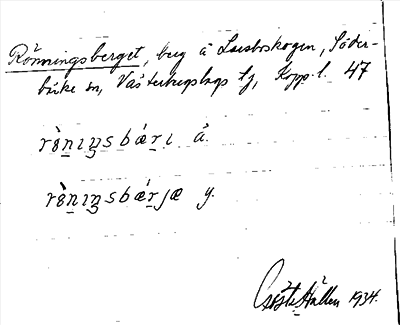 Rönningsberget, berg å Laxbroskogen, Söder-
bärke sn, Västerbergslags tg, Kopp. l. 47
rö̀nıŋsbærı å.
rö̀nıŋsbærjæ y.
Gösta Hallen 1934.